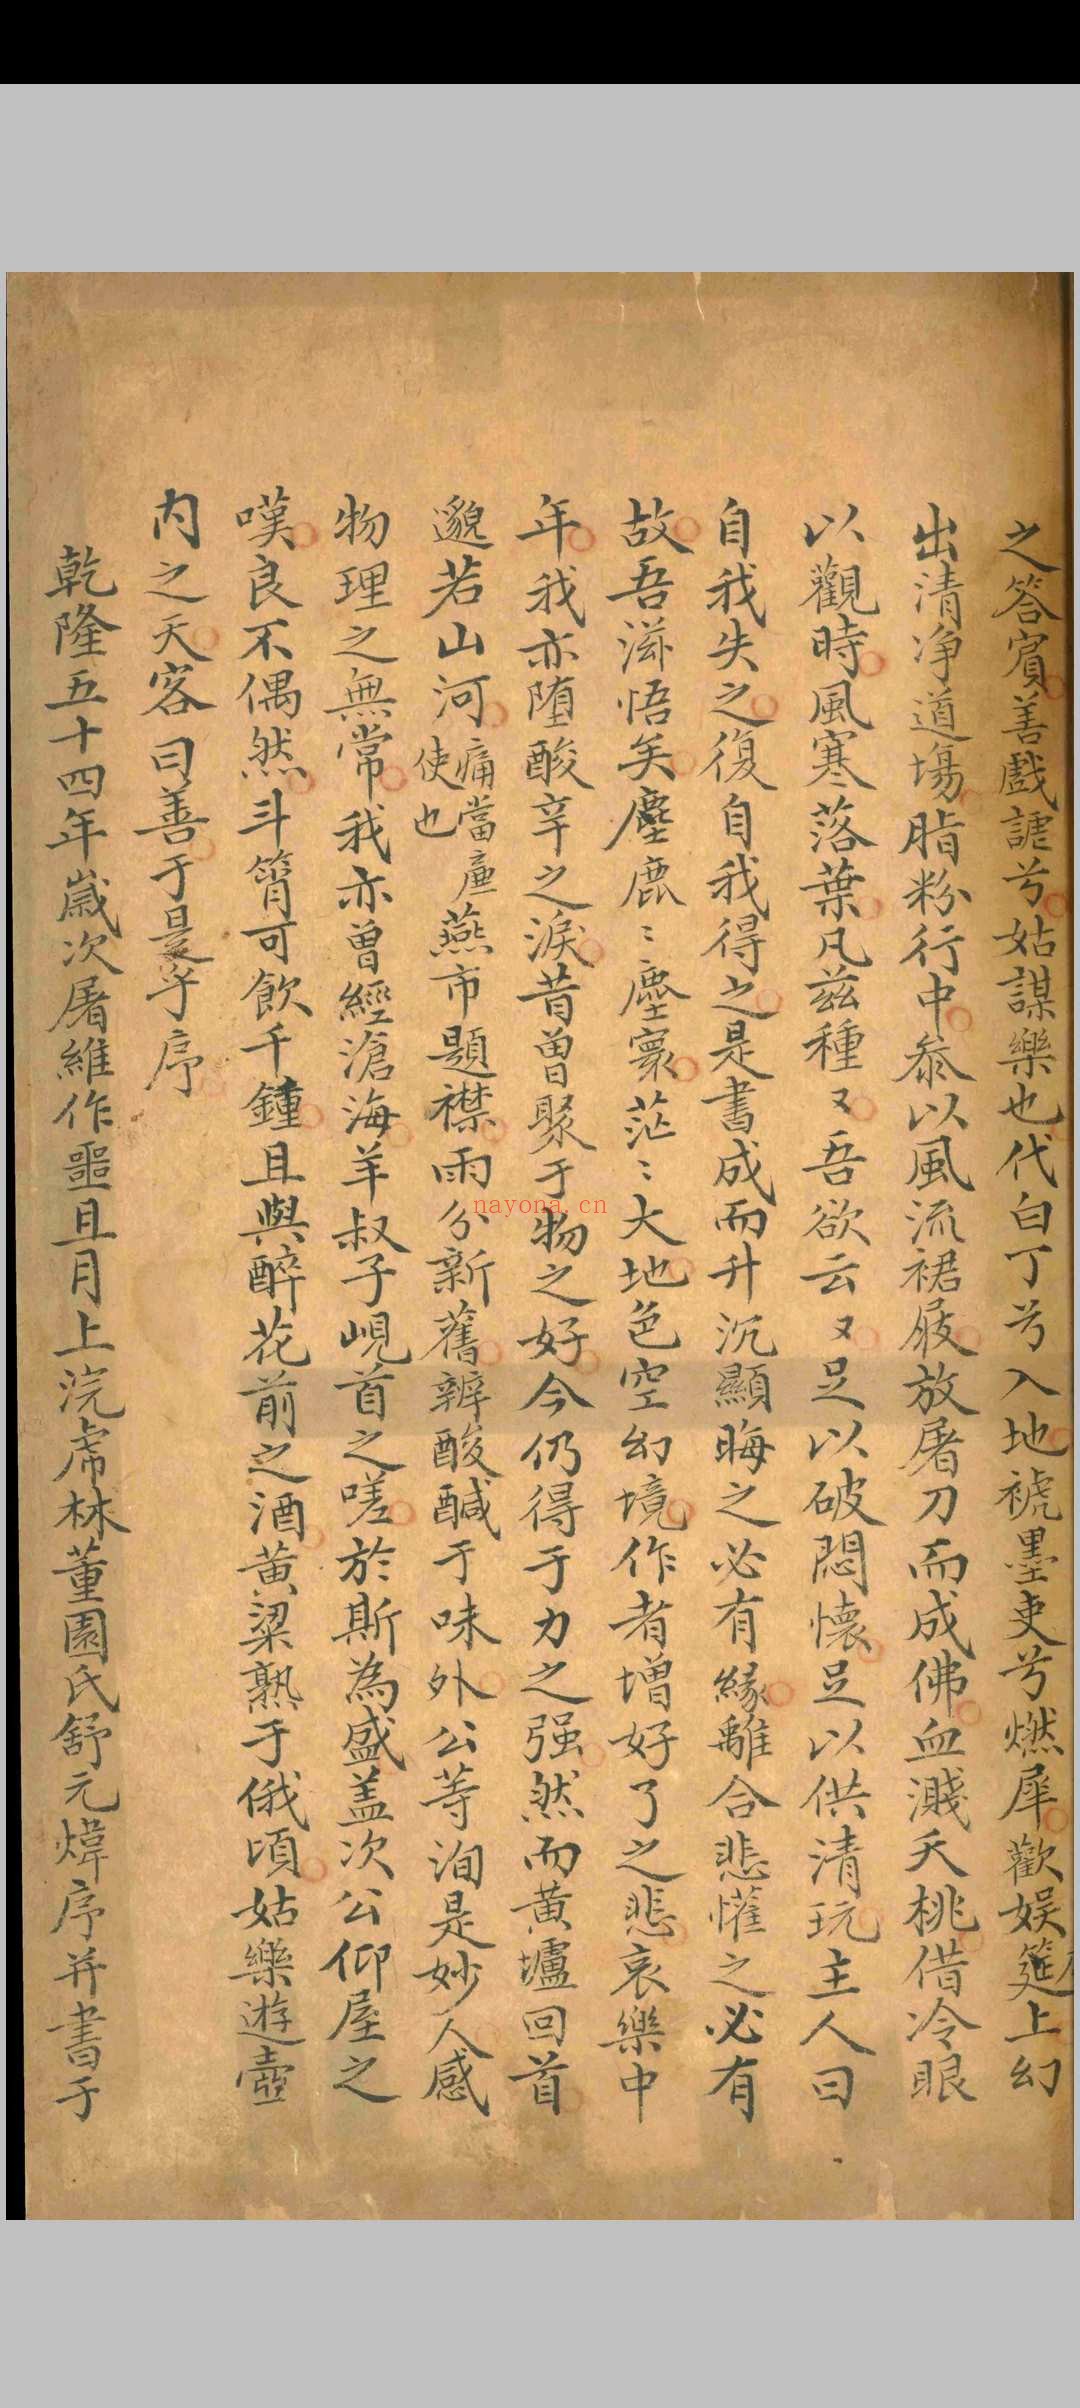 之答賓善戲謔兮姑謀樂也代白丁兮入地褫墨吏兮燃犀歡娱筵上幻
出清净道塲脂粉行中叅以風流裙屐放屠刀而成佛血濺夭桃借冷眼
以觀時風寒落葉凡兹種〻吾欲云〻足以破悶懷足以供清玩主人曰
自我失之復自我得之是書成而升沉顯晦之必有緣離合悲懽之必有
故吾滋悟矣塵鹿〻塵寰茫〻大地色空幻境作者増好了之悲哀樂中
年我亦堕酸辛之淚昔曾聚于物之好今仍得于力之强然而黄壚回首
邈若山河痛當庭使也燕市題襟雨分新舊辨酸醎于味外公等洵是妙人感
物理之無常我亦曾經滄海羊叔子峴首之嗟於斯為盛盖次公仰屋之
嘆良不偶然斗筲可飲千鍾且與醉花前之酒黄粱熟于俄頃姑樂遊壺
内之天客曰善于是乎序
乾隆五十四年嵗次屠維作噩且月上浣虎林董園氏舒元煒序并書于
nayona.cn